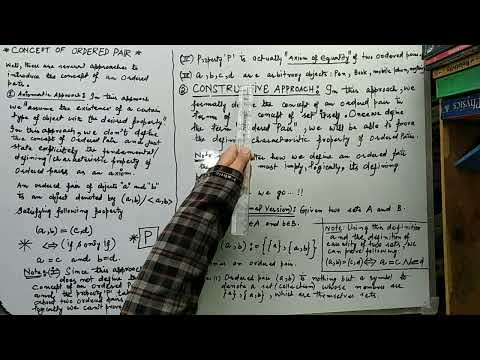 * CONCEPT OF ORDERED PAIR *
Well, there are several approaches to
introduce the concept of an ordered
pair.
① Axiomatic Approach: In this approach
we "assume the existence of a certain
type of object with the desired property."
In this approach, we don't define
the concept of Ordered Pair and just
state explicitly the fundamental/
defining/characteristic property of
ordered pairs as an axiom.
An ordered pair of objects "a" and "b"
is an object denoted by (a,b)/<a,b>
satisfying following property
(a,b) = (c,d)
* ⟺ (if & only if) * P
a = c and b = d.
Note: (I) Since this approach
does not define the
concept of an Ordered Pair
and the property 'P'
about two ordered pairs
logically we can't prove
(II) Property 'P' is actually "axiom of equality" of two ordered pairs.
(III) a, b, c, d are arbitrary objects: Pen, Book, mobile phone,
② CONSTRUCTIVE APPROACH: In this approach, we
formally define the concept of an ordered pair in
terms of the concept of set itself. Once we define
the term "Ordered Pair", we will be able to prove
the defining characteristic property of Ordered Pairs.
Note: how we define an ordered pair
must imply, logically, its defining
we go...!!
Version): Given two sets A and B.
∈ A and b ∈ B.
(a,b) := {{a}, {a,b}}
an ordered pair.
Ordered pair (a,b) is nothing but a symbol to
denote a set (collection) whose members are
{a}, {a,b}, which are themselves sets.
Note: Using this definition
and the definition of
equality of two sets, we
can prove following:
(a,b) = (c,d) ⟺ a = c ∧ b = d
Physics